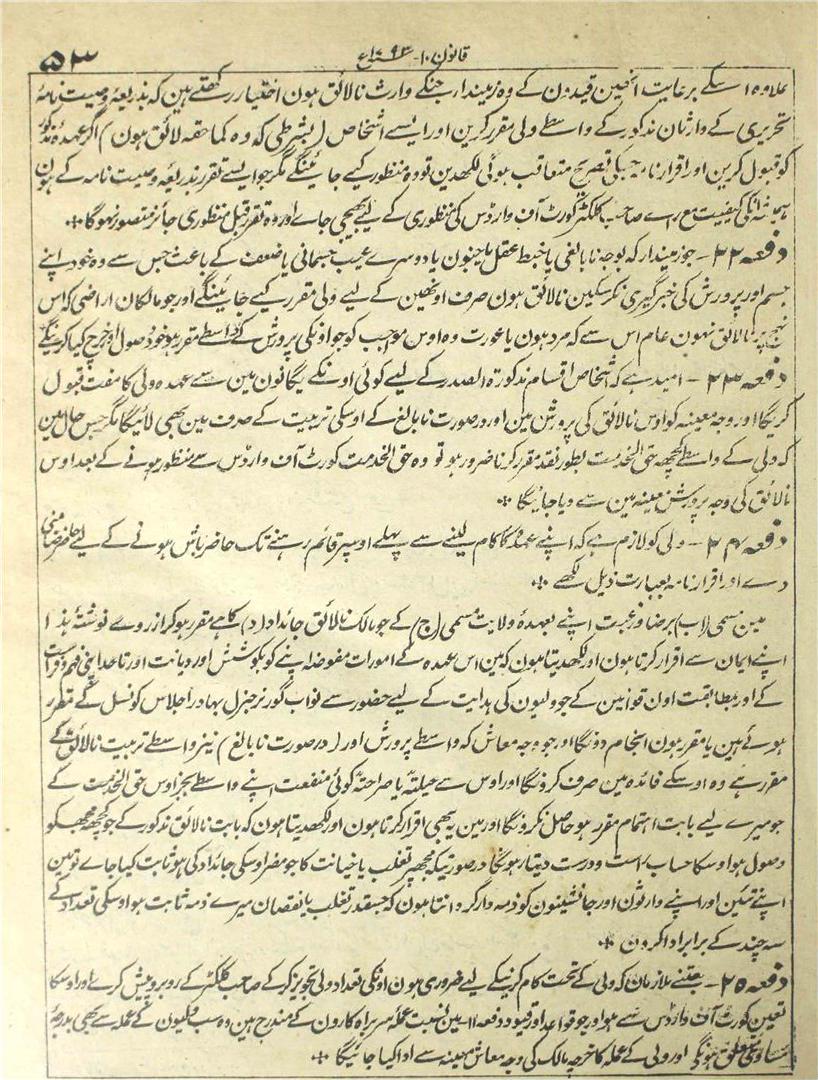 قانون ۱۰ - ۱۷۹۳ع
۵۳
علاوہ اسکے برعایت انھین قیدون کے وہ زمیندار جنکے وارث نالائق ہون اختیار رکھتے ہین کہ بذریعہ وصیت نامہ
تحریری کے وارثان مذکور کے واسطے ولی مقرر کرین اور ایسے اشخاص (بشرطی کہ وہ کما حقہ لائق ہون) اگر عہدہ مذکور
کو قبول کرین اور اقرار نامہ جسکی تصریح متعاقب ہوئی لکھدین تو وہ منظور کیے جائینگے مگر جو ایسے تقرر بذریعہ وصیت نامہ کے ہون
ہمیشہ انکی کیفیت مع راے صاحب کلکٹر کورٹ آف وارڈس کی منظوری کے لیے بھیجی جاے اور وہ تقرر قبل منظوری جائز متصور نہوگا
دفعہ ۲۲ - جو زمیندار کہ بوجہ نابالغی یا خبط عقل یا جنون یا دوسرے عیب جسمانی یا ضعف کے باعث جس سے وہ خود اپنے
جسم اور پرورش کی خبرگیری نکرسکین نالائق ہون صرف اونھین کے لیے ولی مقرر کیے جائینگے اور جو مالکان اراضی کہ اس
نہج پر نالائق نہون عام اس سے کہ مرد ہون یا عورت وہ اوس مواجب کو جو اونکی پرورش کے واسطے مقرر ہو خود وصول اور خرچ کیا کرینگے
دفعہ ۲۳ - امید ہے کہ اشخاص اقسام مذکورۃ الصدر کے لیے کوئی اونکے یگانون مین سے عہدہ ولی کا مفت قبول
کریگا اور وجہ معینہ کو اوس نالائق کی پرورش مین اور درصورت نابالغ کے اوسکی تربیت کے صرف مین بھی لائیگا مگر جس حال مین
کہ ولی کے واسطے کچھ حق الخدمت بطور نقد مقرر کرنا ضرور ہو تو وہ حق الخدمت کورٹ آف وارڈس سے منظور ہونے کے بعد اوس
نالائق کی وجہ پرورش معینہ مین سے دیا جائیگا
دفعہ ۲۴ - ولی کو لازم ہے کہ اپنے عہدہ کا کام لینے سے پہلے اوسپر قائم رہنے تک حاضر باش ہونے کے لیے حاضر ضامنی
دے اور اقرار نامہ بعبارت ذیل لکھے
مین مسمی (اب) برضا و رغبت اپنے بعہدہ ولایت مسمی (ج) کے جو مالک نالائق جائداد (د) کا ہے مقرر ہوکر از روے نوشتہ ہذا
اپنے ایمان سے اقرار کرتا ہون اور لکھدیتا ہون کہ مین اس عہدہ کے امورات مفوضہ اپنے کو بکوشش اور دیانت اور تا حد اپنی فہم و فراست
کے اور بمطابقت اون قوانین کے جو ولیون کی ہدایت کے لیے حضور سے نواب گورنر جنرل بہادر اجلاس کونسل کے مقرر
ہوئے ہین یا مقرر ہون انجام دونگا اور جو وجہ معاش کہ واسطے پرورش اور (درصورت نابالغ) نیز واسطے تربیت نالائق کے
مقرر ہے وہ اوسکے فائدہ مین صرف کرونگا اور اوس سے حیلتہً یا صراحتہً کوئی منفعت اپنے واسطے بجز اوس حق الخدمت کے
جو میرے لیے بابت اہتمام مقرر ہو حاصل نکرونگا اور مین یہ بھی اقرار کرتا ہون اور لکھدیتا ہون کہ بابت نالائق مذکور کے جو کچھ مجھکو
وصول ہو اوسکا حساب راست و درست دیتا رہونگا درصورتیکہ مجھپر تغلب یا خیانت کا جو مضر اوسکی جائداد کی ہو ثابت کیا جاے تو مین
اپنے تئین اور اپنے وارثون اور جانشینون کو ذمہ دار گردانتا ہون کہ جسقدر تغلب یا نقصان میرے ذمہ ثابت ہو اوسکی تعداد کے
سہ چند کے برابر ادا کردن
دفعہ ۲۵ - جتنے ملازمان کہ ولی کے تحت کام کرنیکے لیے ضروری ہون اونکی تعداد ولی تجویز کرکے صاحب کلکٹر کے روبرو پیش کرے اور اوسکا
تعین کورٹ آف وارڈس سے ہو اور جو قواعد اور قیود دفعہ ۱۱ مین بنسبت عملہ سربراہ کارون کے مندرج ہین وہ سب ولیون کے عملہ سے بھی بدرجہ
مساوی متعلق ہونگے اور ولی کے عملہ کا خرچہ مالک کی وجہ معاش معینہ سے ادا کیا جائیگا